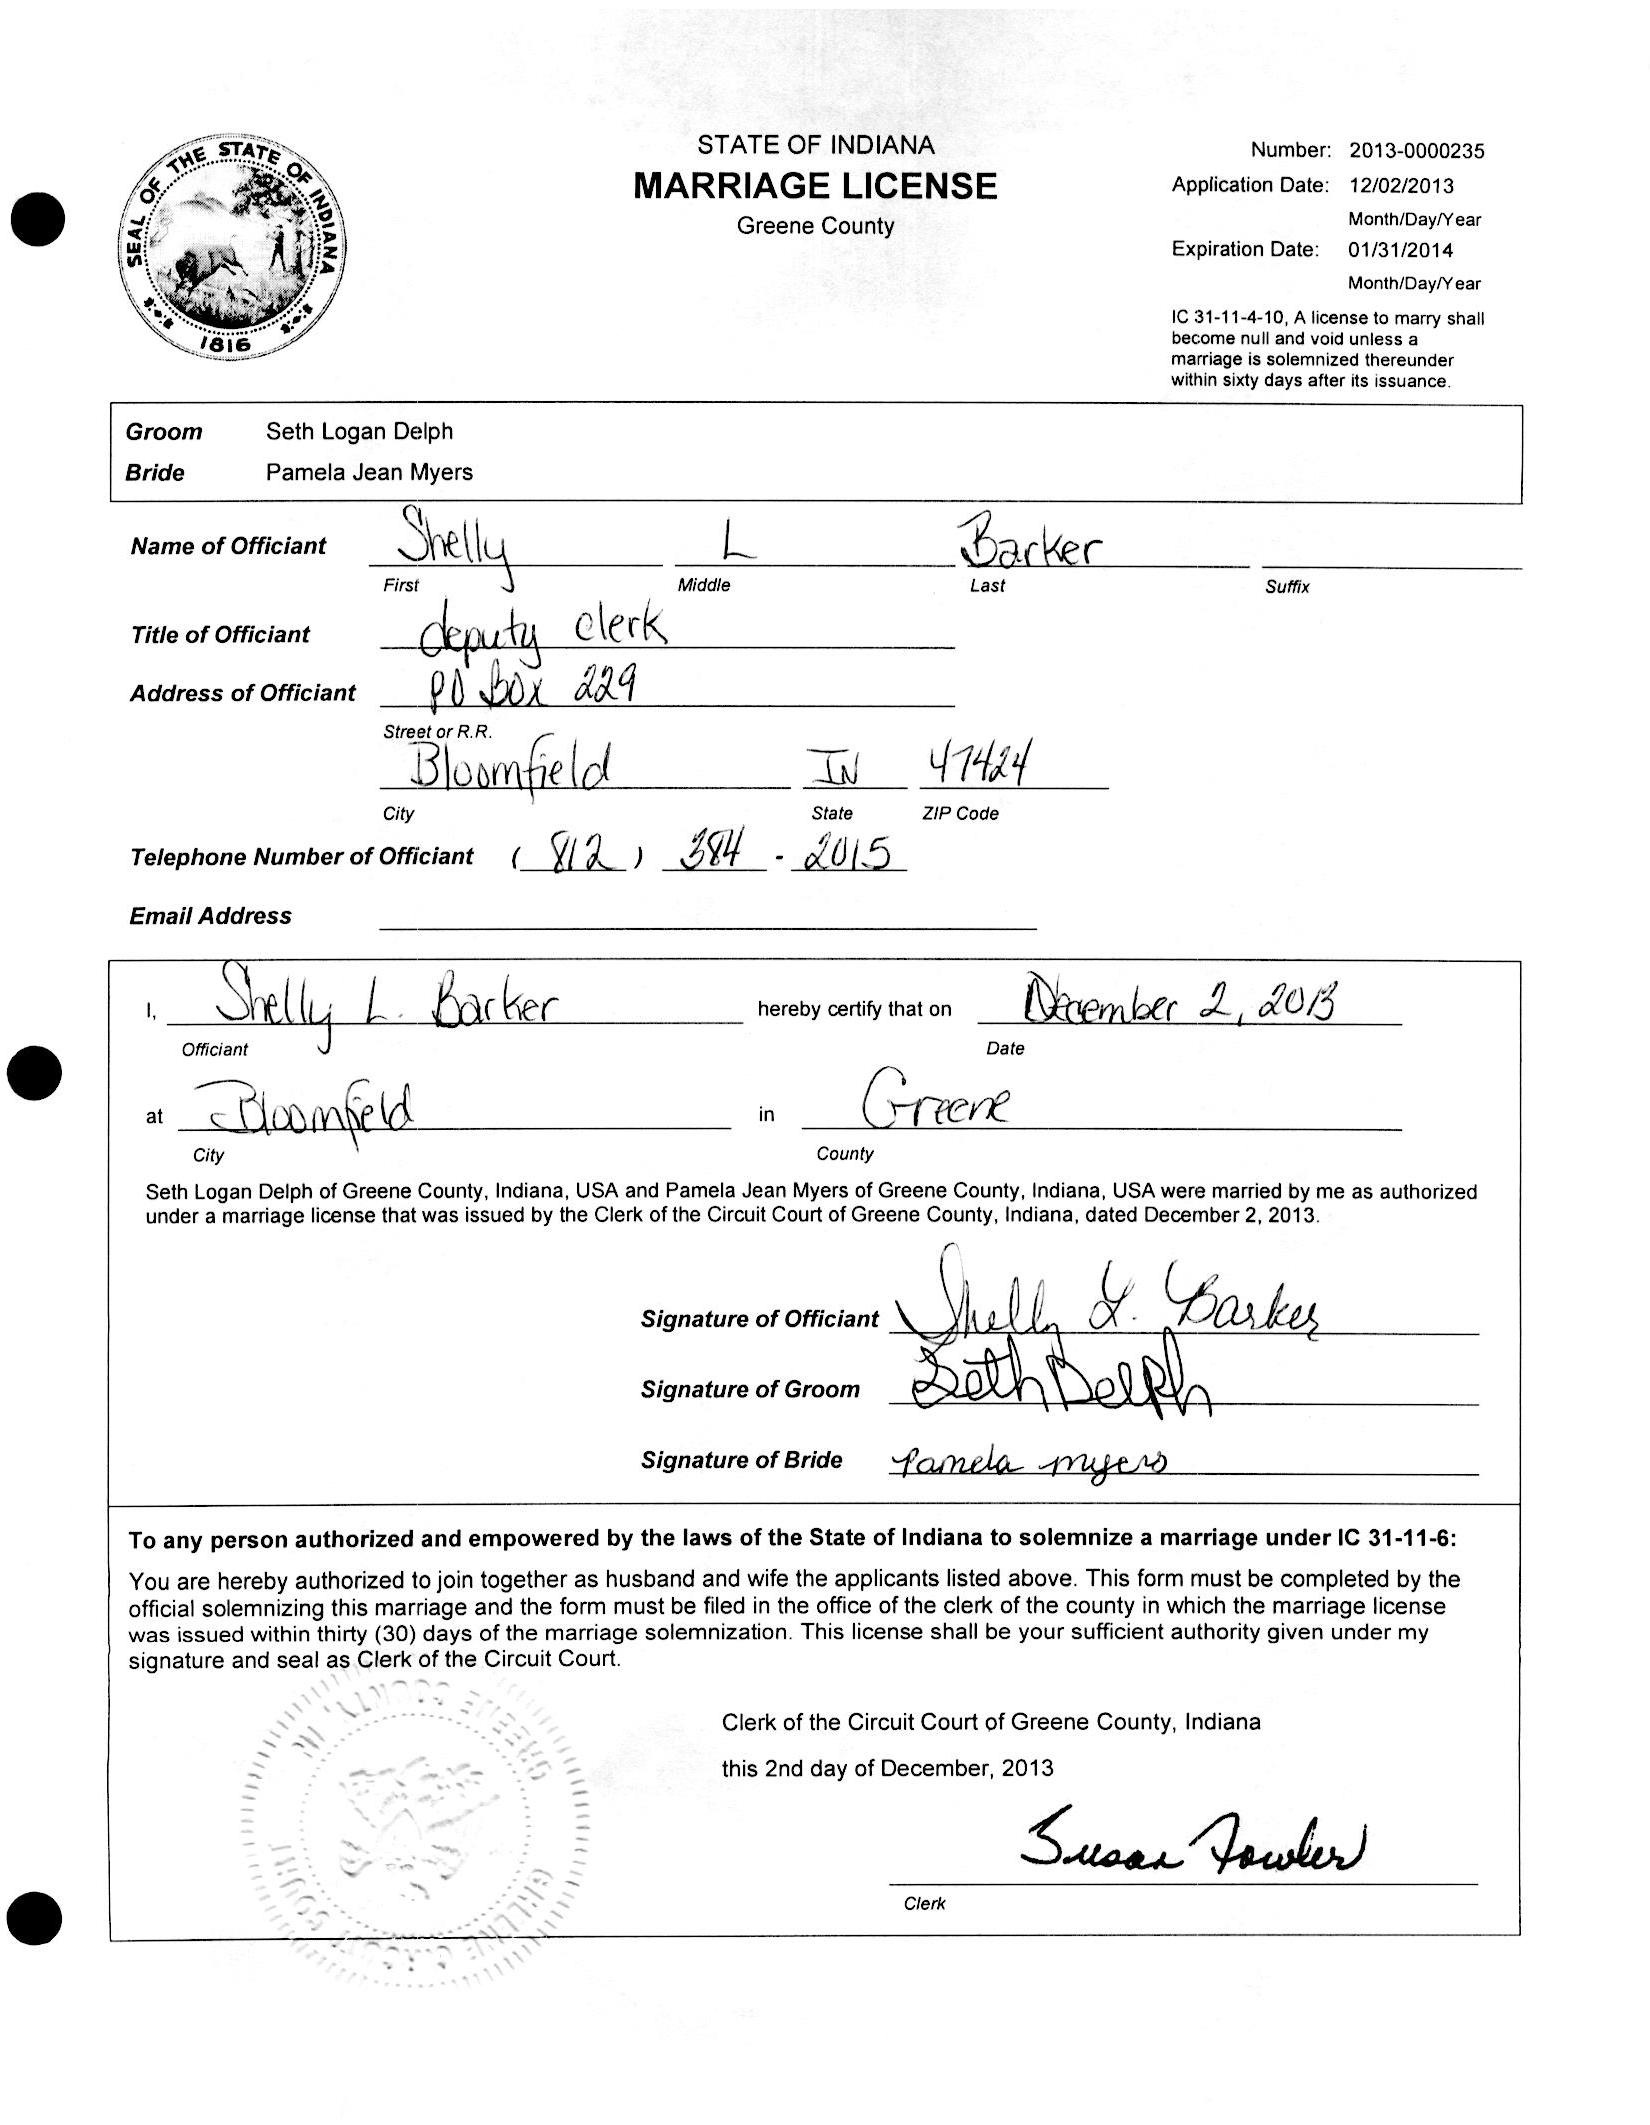 SEAL OF THE STATE OF INDIANA
1816
STATE OF INDIANA
MARRIAGE LICENSE
Greene County
Number: 2013-0000235
Application Date: 12/02/2013
Month/Day/Year
Expiration Date: 01/31/2014
Month/Day/Year
IC 31-11-4-10, A license to marry shall
become null and void unless a
marriage is solemnized thereunder
within sixty days after its issuance.
Groom Seth Logan Delph
Bride Pamela Jean Myers
Name of Officiant Shelly L Barker
First Middle Last Suffix
Title of Officiant deputy clerk
Address of Officiant PO Box 229
Street or R.R.
Bloomfield IN 47424
City State ZIP Code
Telephone Number of Officiant (812) 384 - 2015
Email Address
I, Shelly L. Barker hereby certify that on December 2, 2013
Officiant Date
at Bloomfield in Greene
City County
Seth Logan Delph of Greene County, Indiana, USA and Pamela Jean Myers of Greene County, Indiana, USA were married by me as authorized
under a marriage license that was issued by the Clerk of the Circuit Court of Greene County, Indiana, dated December 2, 2013.
Signature of Officiant Shelly L. Barker
Signature of Groom Seth Delph
Signature of Bride Pamela Myers
To any person authorized and empowered by the laws of the State of Indiana to solemnize a marriage under IC 31-11-6:
You are hereby authorized to join together as husband and wife the applicants listed above. This form must be completed by the
official solemnizing this marriage and the form must be filed in the office of the clerk of the county in which the marriage license
was issued within thirty (30) days of the marriage solemnization. This license shall be your sufficient authority given under my
signature and seal as Clerk of the Circuit Court.
GREENE COUNTY, IN.
Clerk of the Circuit Court of Greene County, Indiana
this 2nd day of December, 2013
Susan Fowler
Clerk